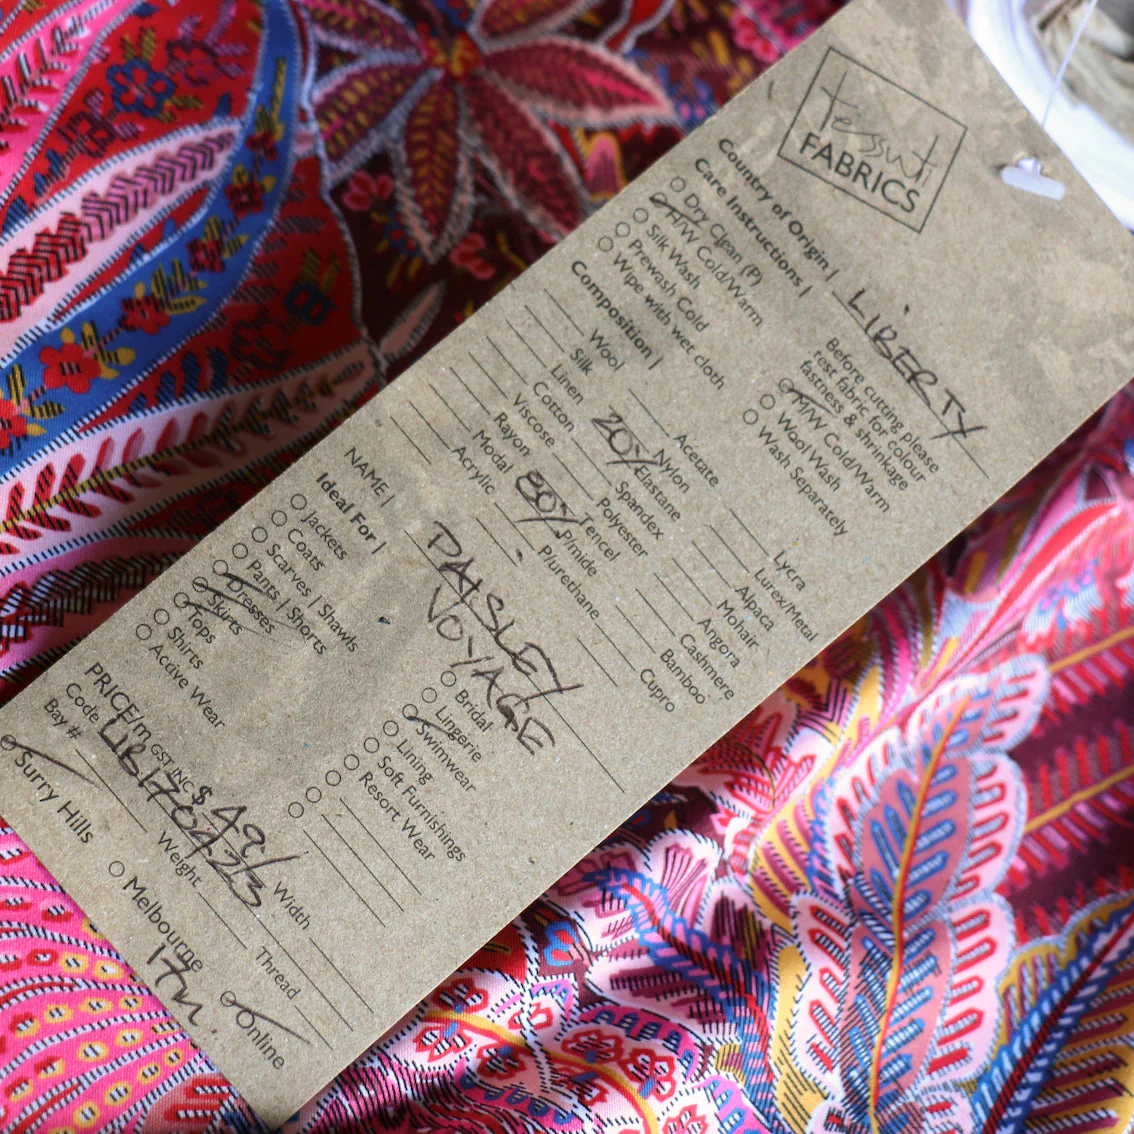 tessuti
FABRICS
Country of Origin | LIBERTY
Care Instructions |
Dry Clean (P)
H/W Cold/Warm
Silk Wash
Prewash Cold
Wipe with wet cloth
Before cutting please
test fabric for colour
fastness & shrinkage
M/W Cold/Warm
Wool Wash
Wash Separately
Composition |
Wool
Silk
Linen
Cotton
Viscose
Rayon
Modal
Acrylic
Acetate
Nylon
20% Elastane
Spandex
Polyester
Tencel
80% P/mide
P/urethane
Lycra
Lurex/Metal
Alpaca
Mohair
Angora
Cashmere
Bamboo
Cupro
NAME | PAISLEY
VOYAGE
Ideal For |
Jackets
Coats
Scarves | Shawls
Pants | Shorts
Dresses
Skirts
Tops
Shirts
Active Wear
Bridal
Lingerie
Swimwear
Lining
Soft Furnishings
Resort Wear
PRICE/m GST INC $ 49/
Code LIB170423
Bay #
Weight
Width
Thread
Surry Hills
Melbourne
Online
17m.